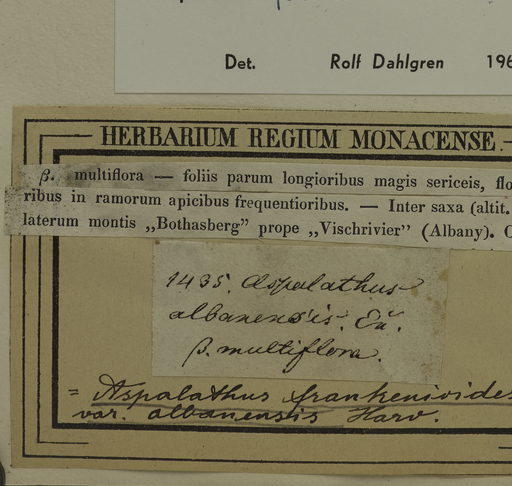 Det. Rolf Dahlgren 196
HERBARIUM REGIUM MONACENSE.
β. multiflora — foliis parum longioribus magis sericeis, flo
ribus in ramorum apicibus frequentioribus. — Inter saxa (altit.
laterum montis „Bothasberg” prope „Vischrivier” (Albany). O
1435. Aspalathus
albanensis. E.
β. multiflora.
= Aspalathus frankenioides
var. albanensis Harv.